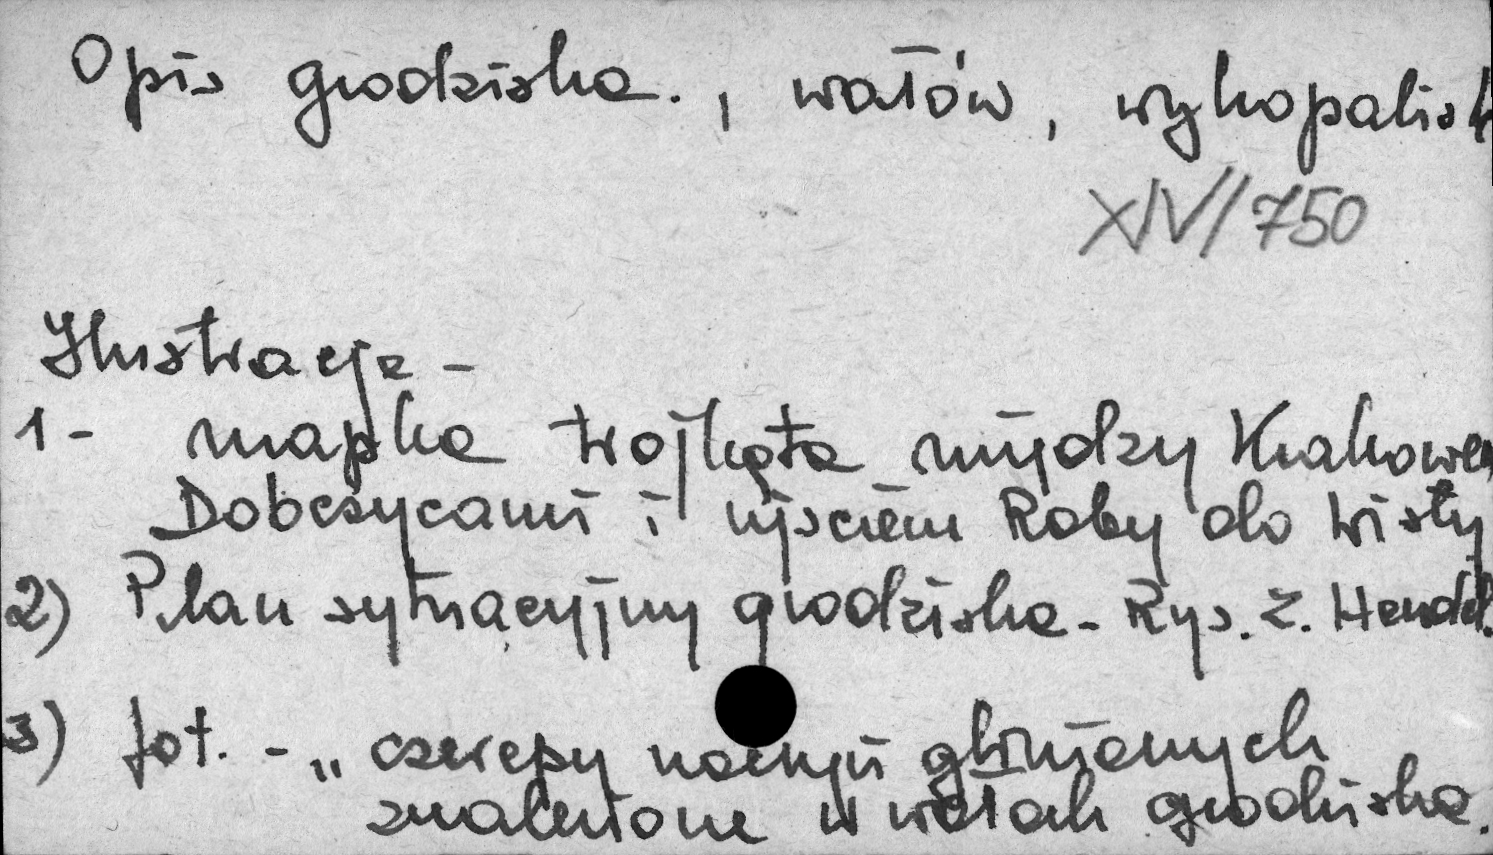 Opis grodziska., wałów, wykopalisk
XIV/750
Ilustracje -
1- mapka trójkąta między Krakowem
Dobczycami i ujściem Raby do Wisły
2) Plan sytuacyjny grodziska - Rys. Z. Hendel.
3) fot. - „czerepy naczyń glinianych
znalezione w wałach grodziska.